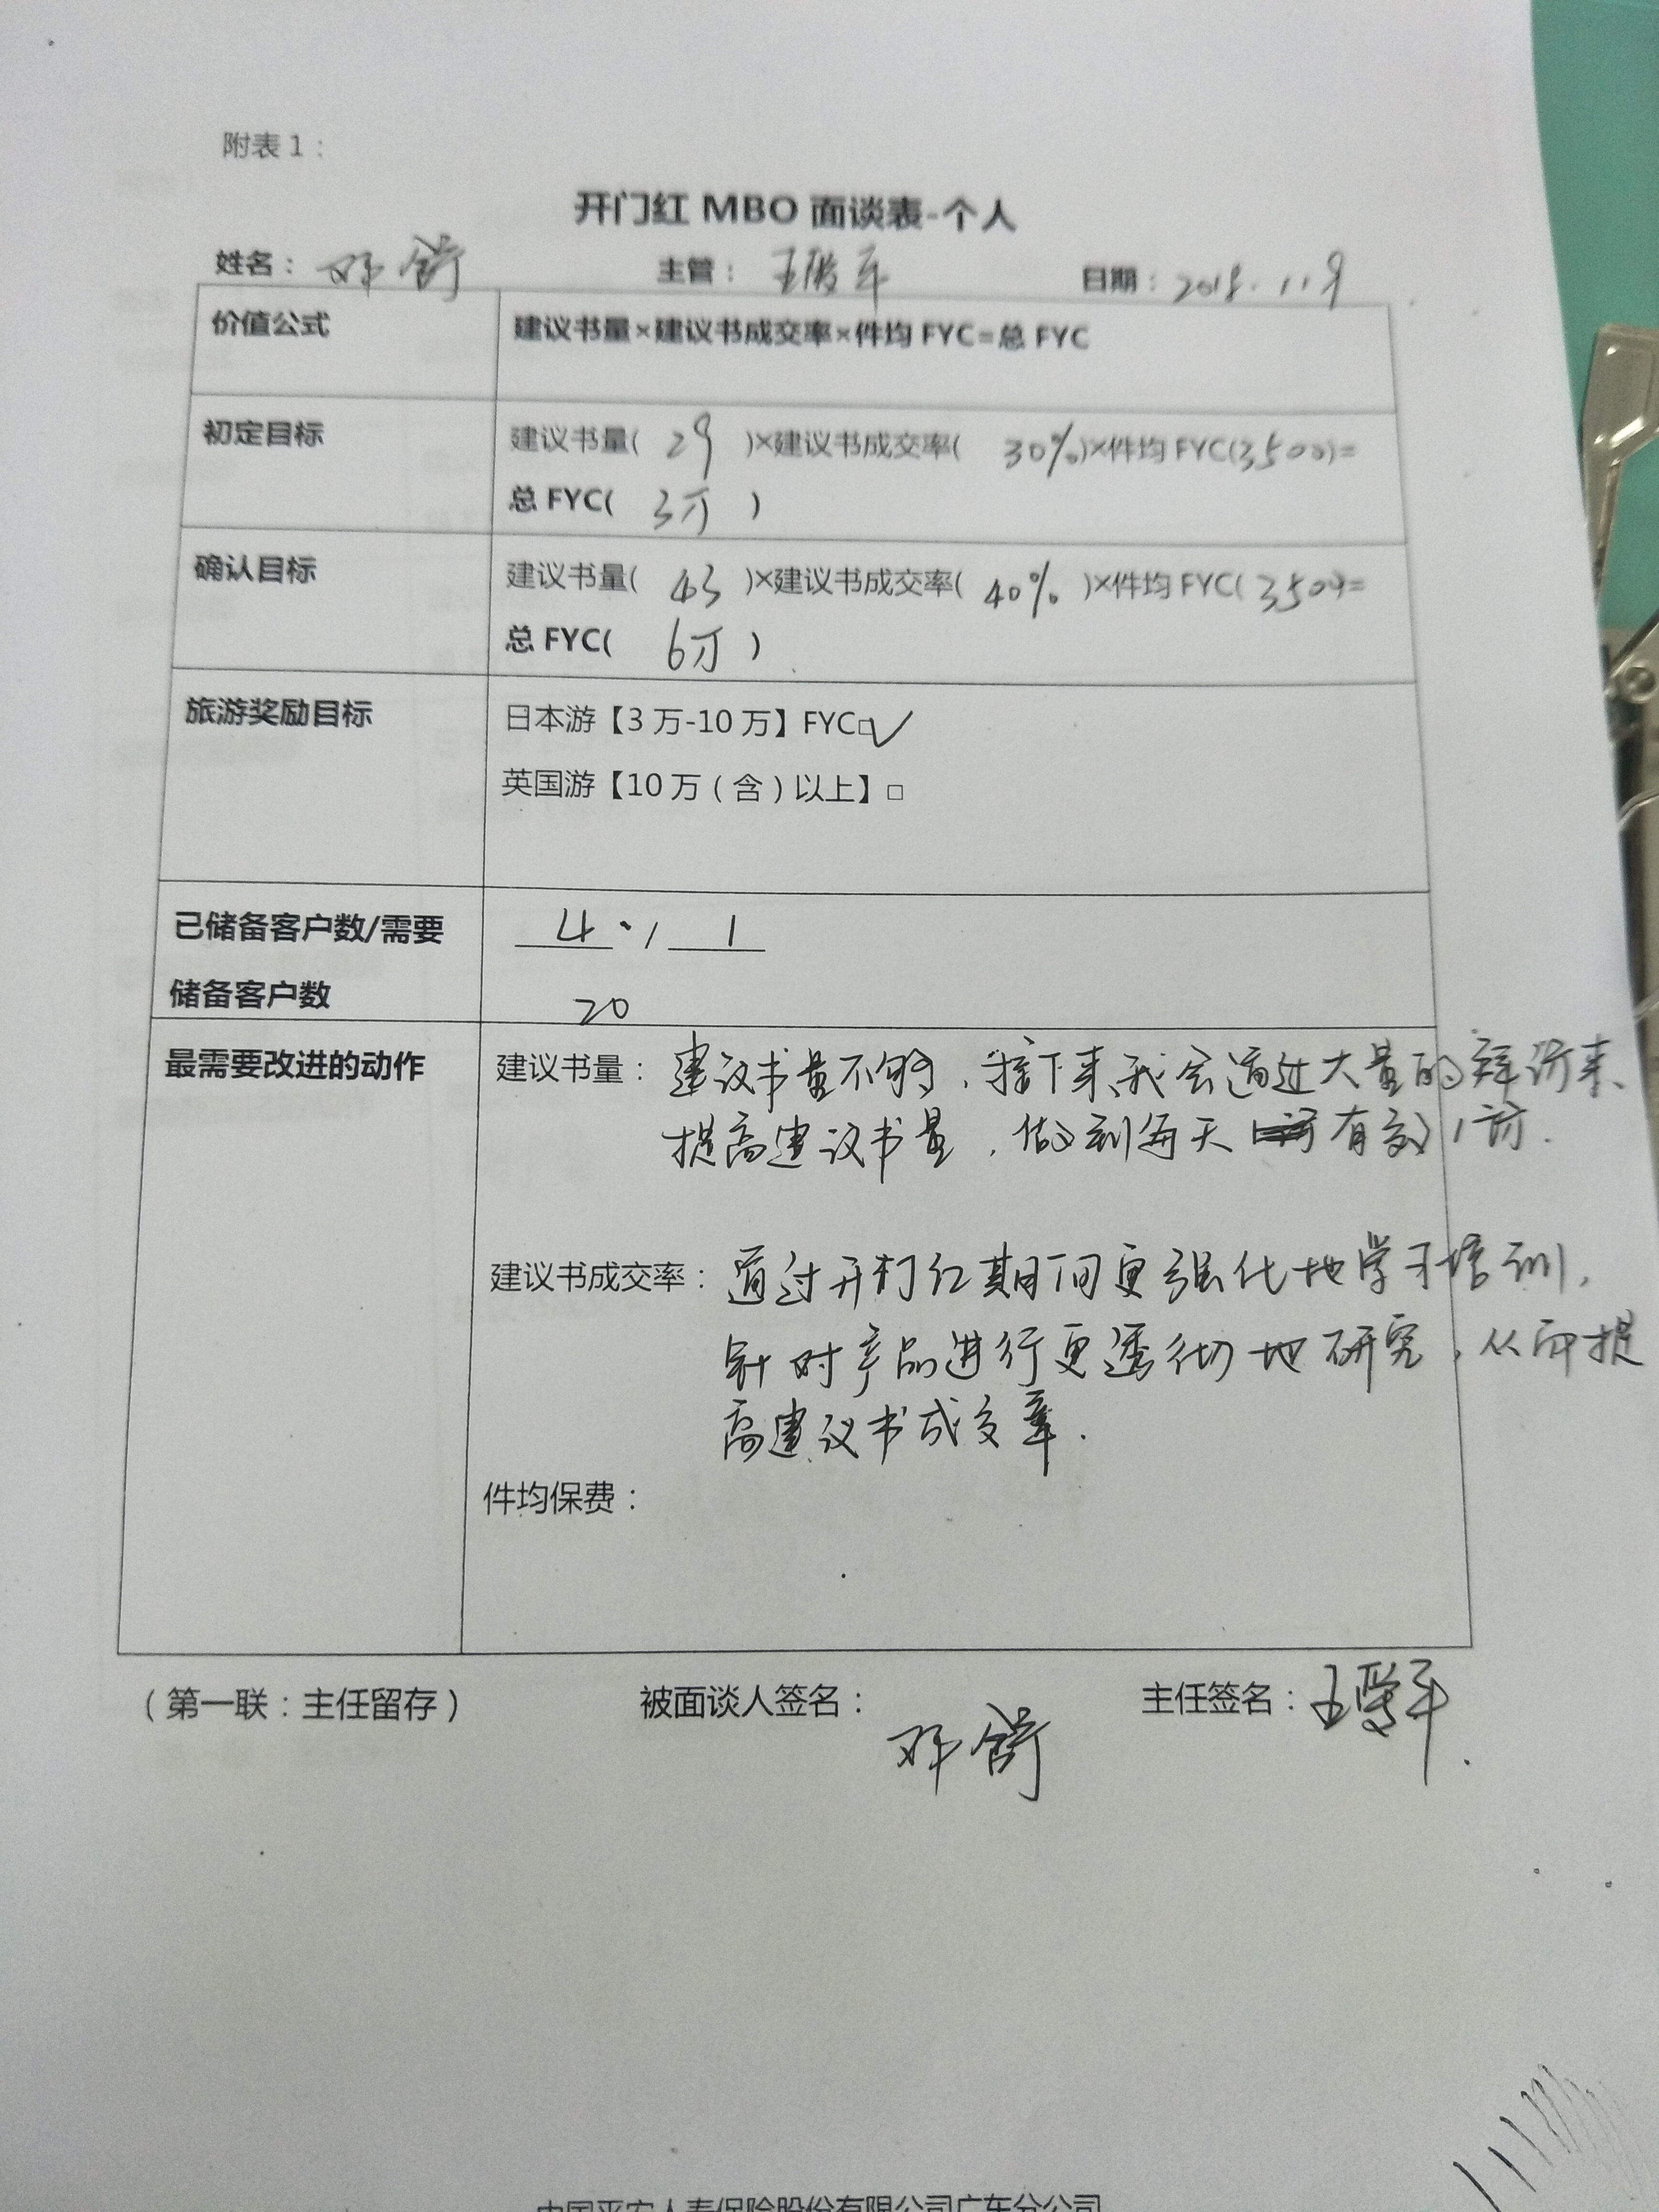 附表1：
开门红 MBO 面谈表-个人
姓名： 邓舒 主管： 王 日期：2018.11.9
价值公式 建议书量×建议书成交率×件均 FYC=总 FYC
初定目标 建议书量( 29 )×建议书成交率( 30%)×件均 FYC(3500)=
总 FYC( 3万 )
确认目标 建议书量( 43 )×建议书成交率( 40% )×件均 FYC( 3500)=
总 FYC( 6万 )
旅游奖励目标 日本游【3 万-10 万】FYC□✓
英国游【10 万（含）以上】□
已储备客户数/需要 4 / 1
储备客户数 20
最需要改进的动作 建议书量： 建议书量不够，接下来我会通过大量的拜访来
提高建议书量，做到每天有效1访.
建议书成交率： 通过开门红期间更强化地学习培训，
针对产品进行更透彻地研究，从而提
高建议书成交率.
件均保费：
（第一联：主任留存） 被面谈人签名： 主任签名：王
邓舒
中国平安人寿保险股份有限公司广东分公司